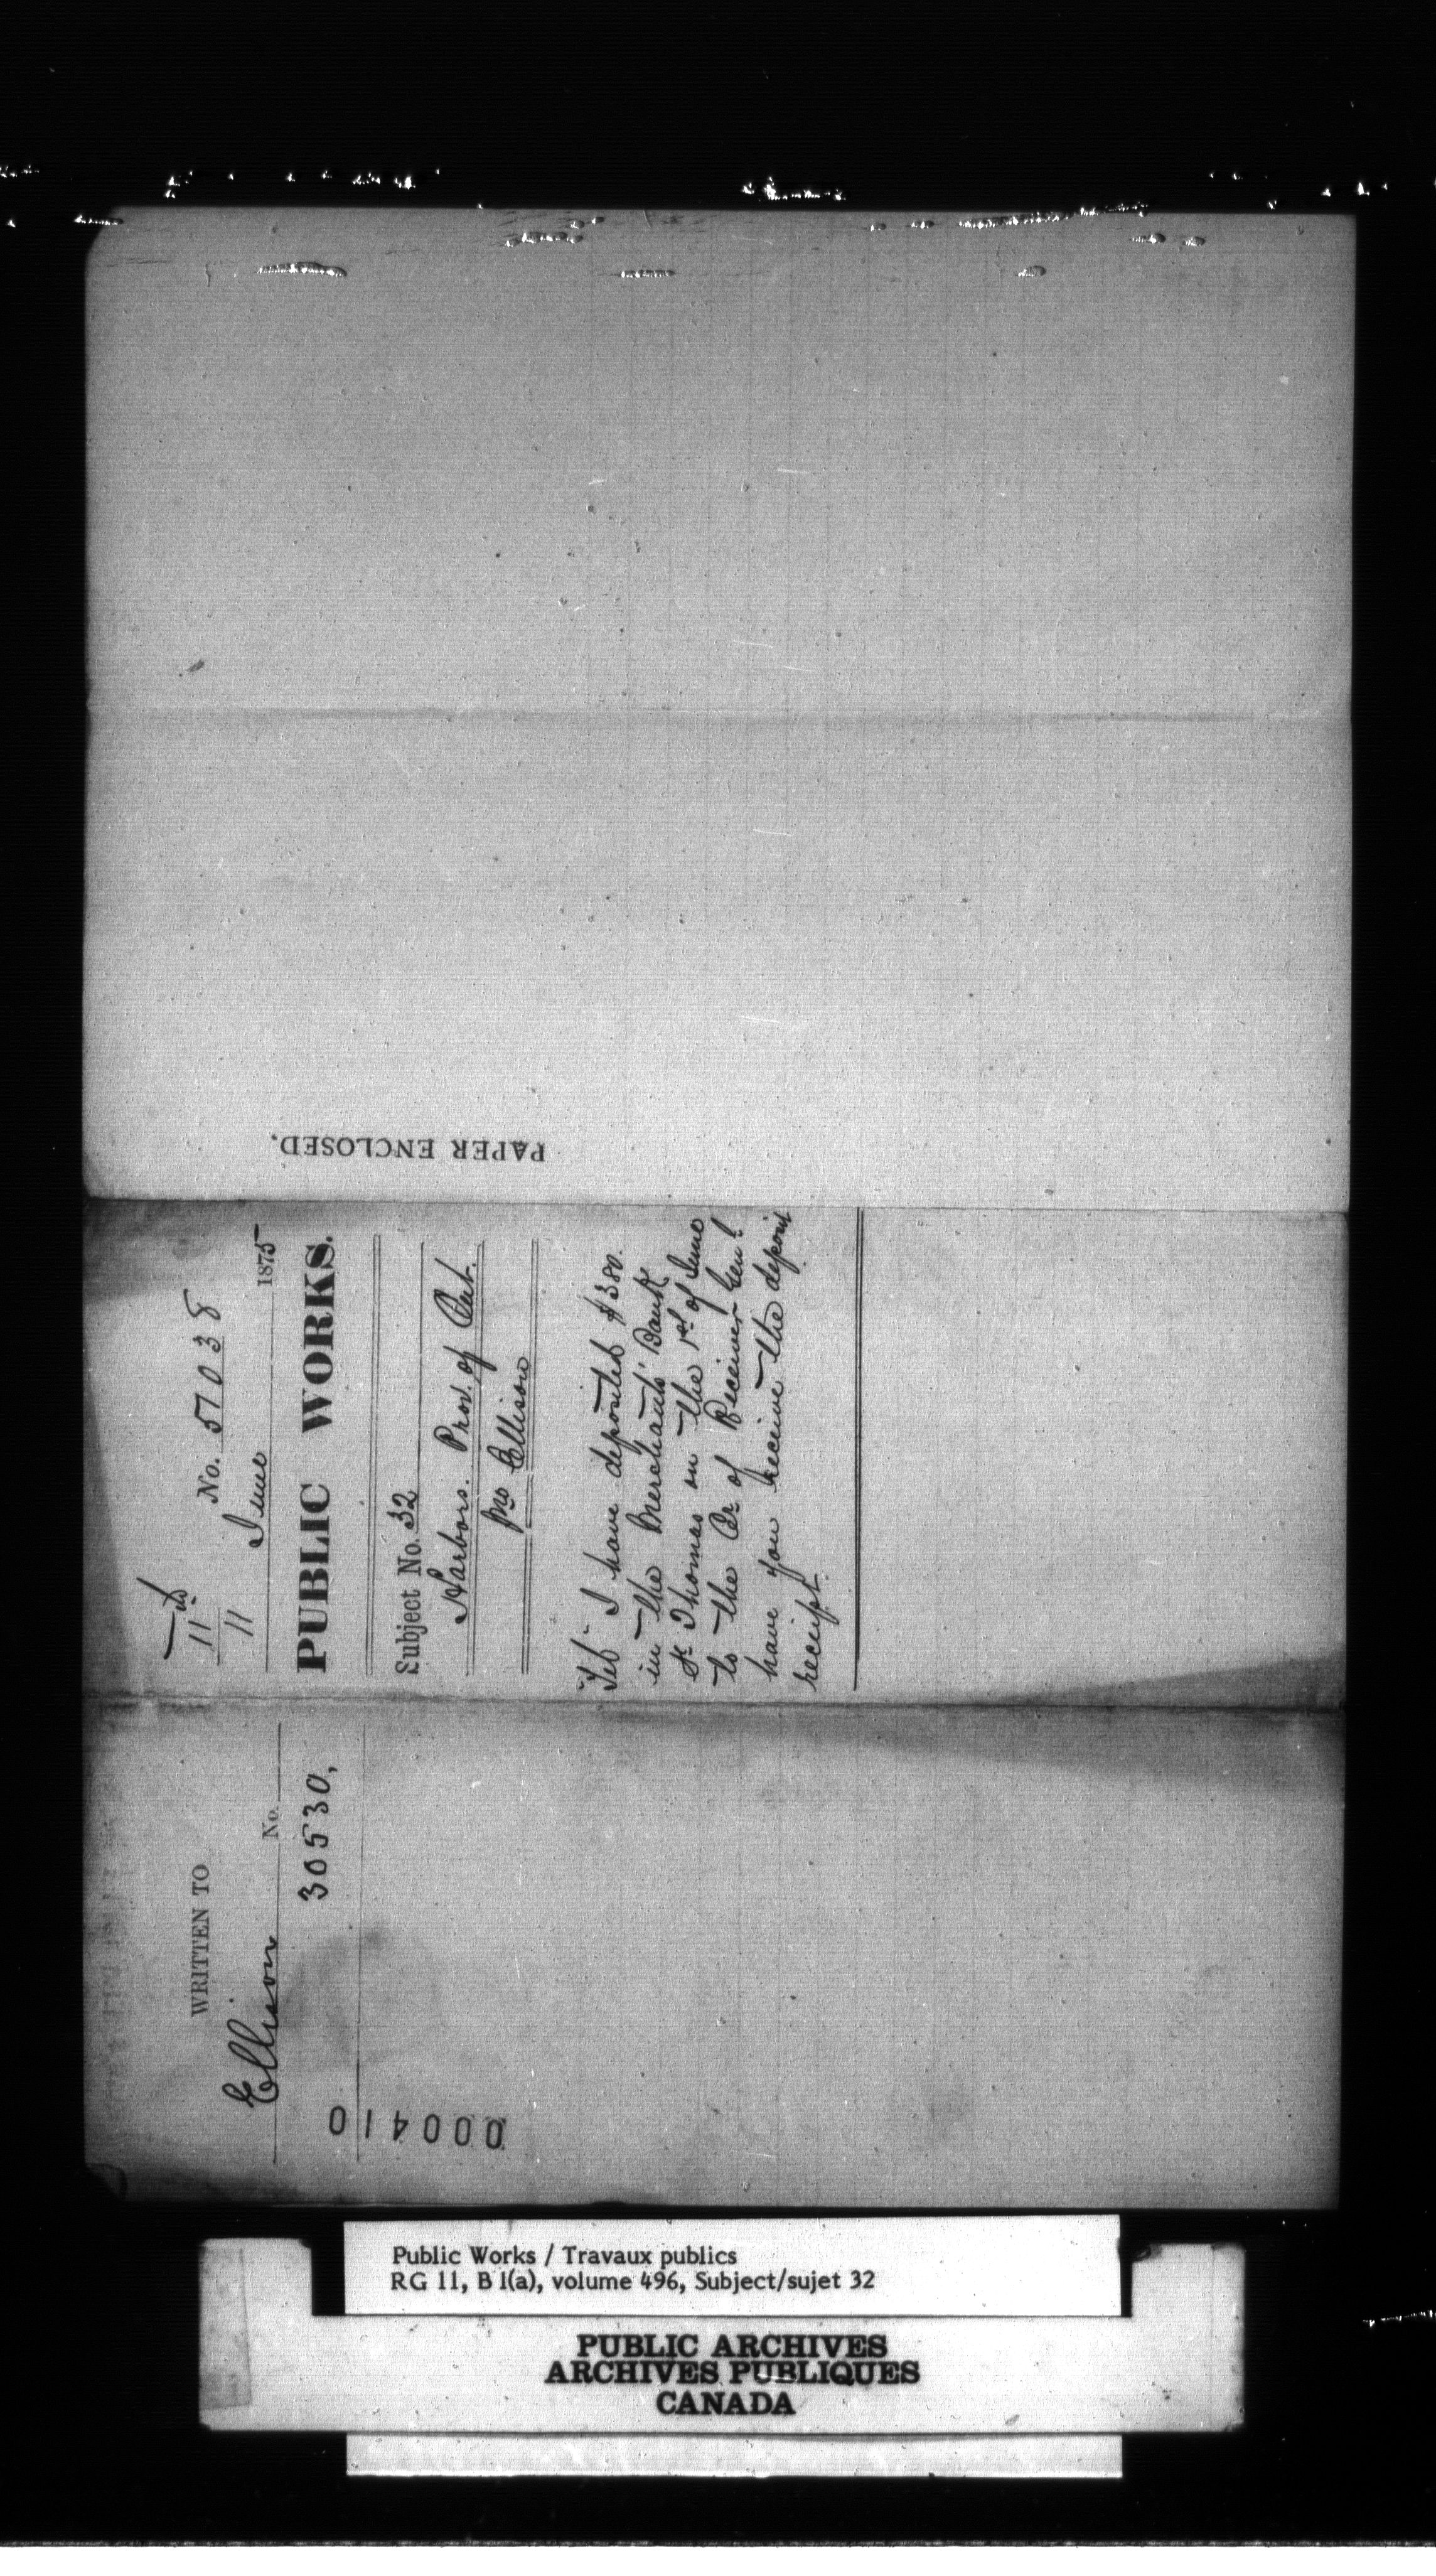 PAPER ENCLOSED.
11
No. 57038
11 June 1875
PUBLIC WORKS.
Subject No. 32
Harbors. Prov. of Ont.
Jno Ellison
Tel I have deposited $380.
in the Merchants' Bank
St Thomas on the 1st of June
to the Cr of Receiver Genl
have you receive the deposit
receipt.
WRITTEN TO
Ellison No.
30530,
000410
Public Works / Travaux publics
RG 11, B 1(a), volume 496, Subject/sujet 32
PUBLIC ARCHIVES
ARCHIVES PUBLIQUES
CANADA